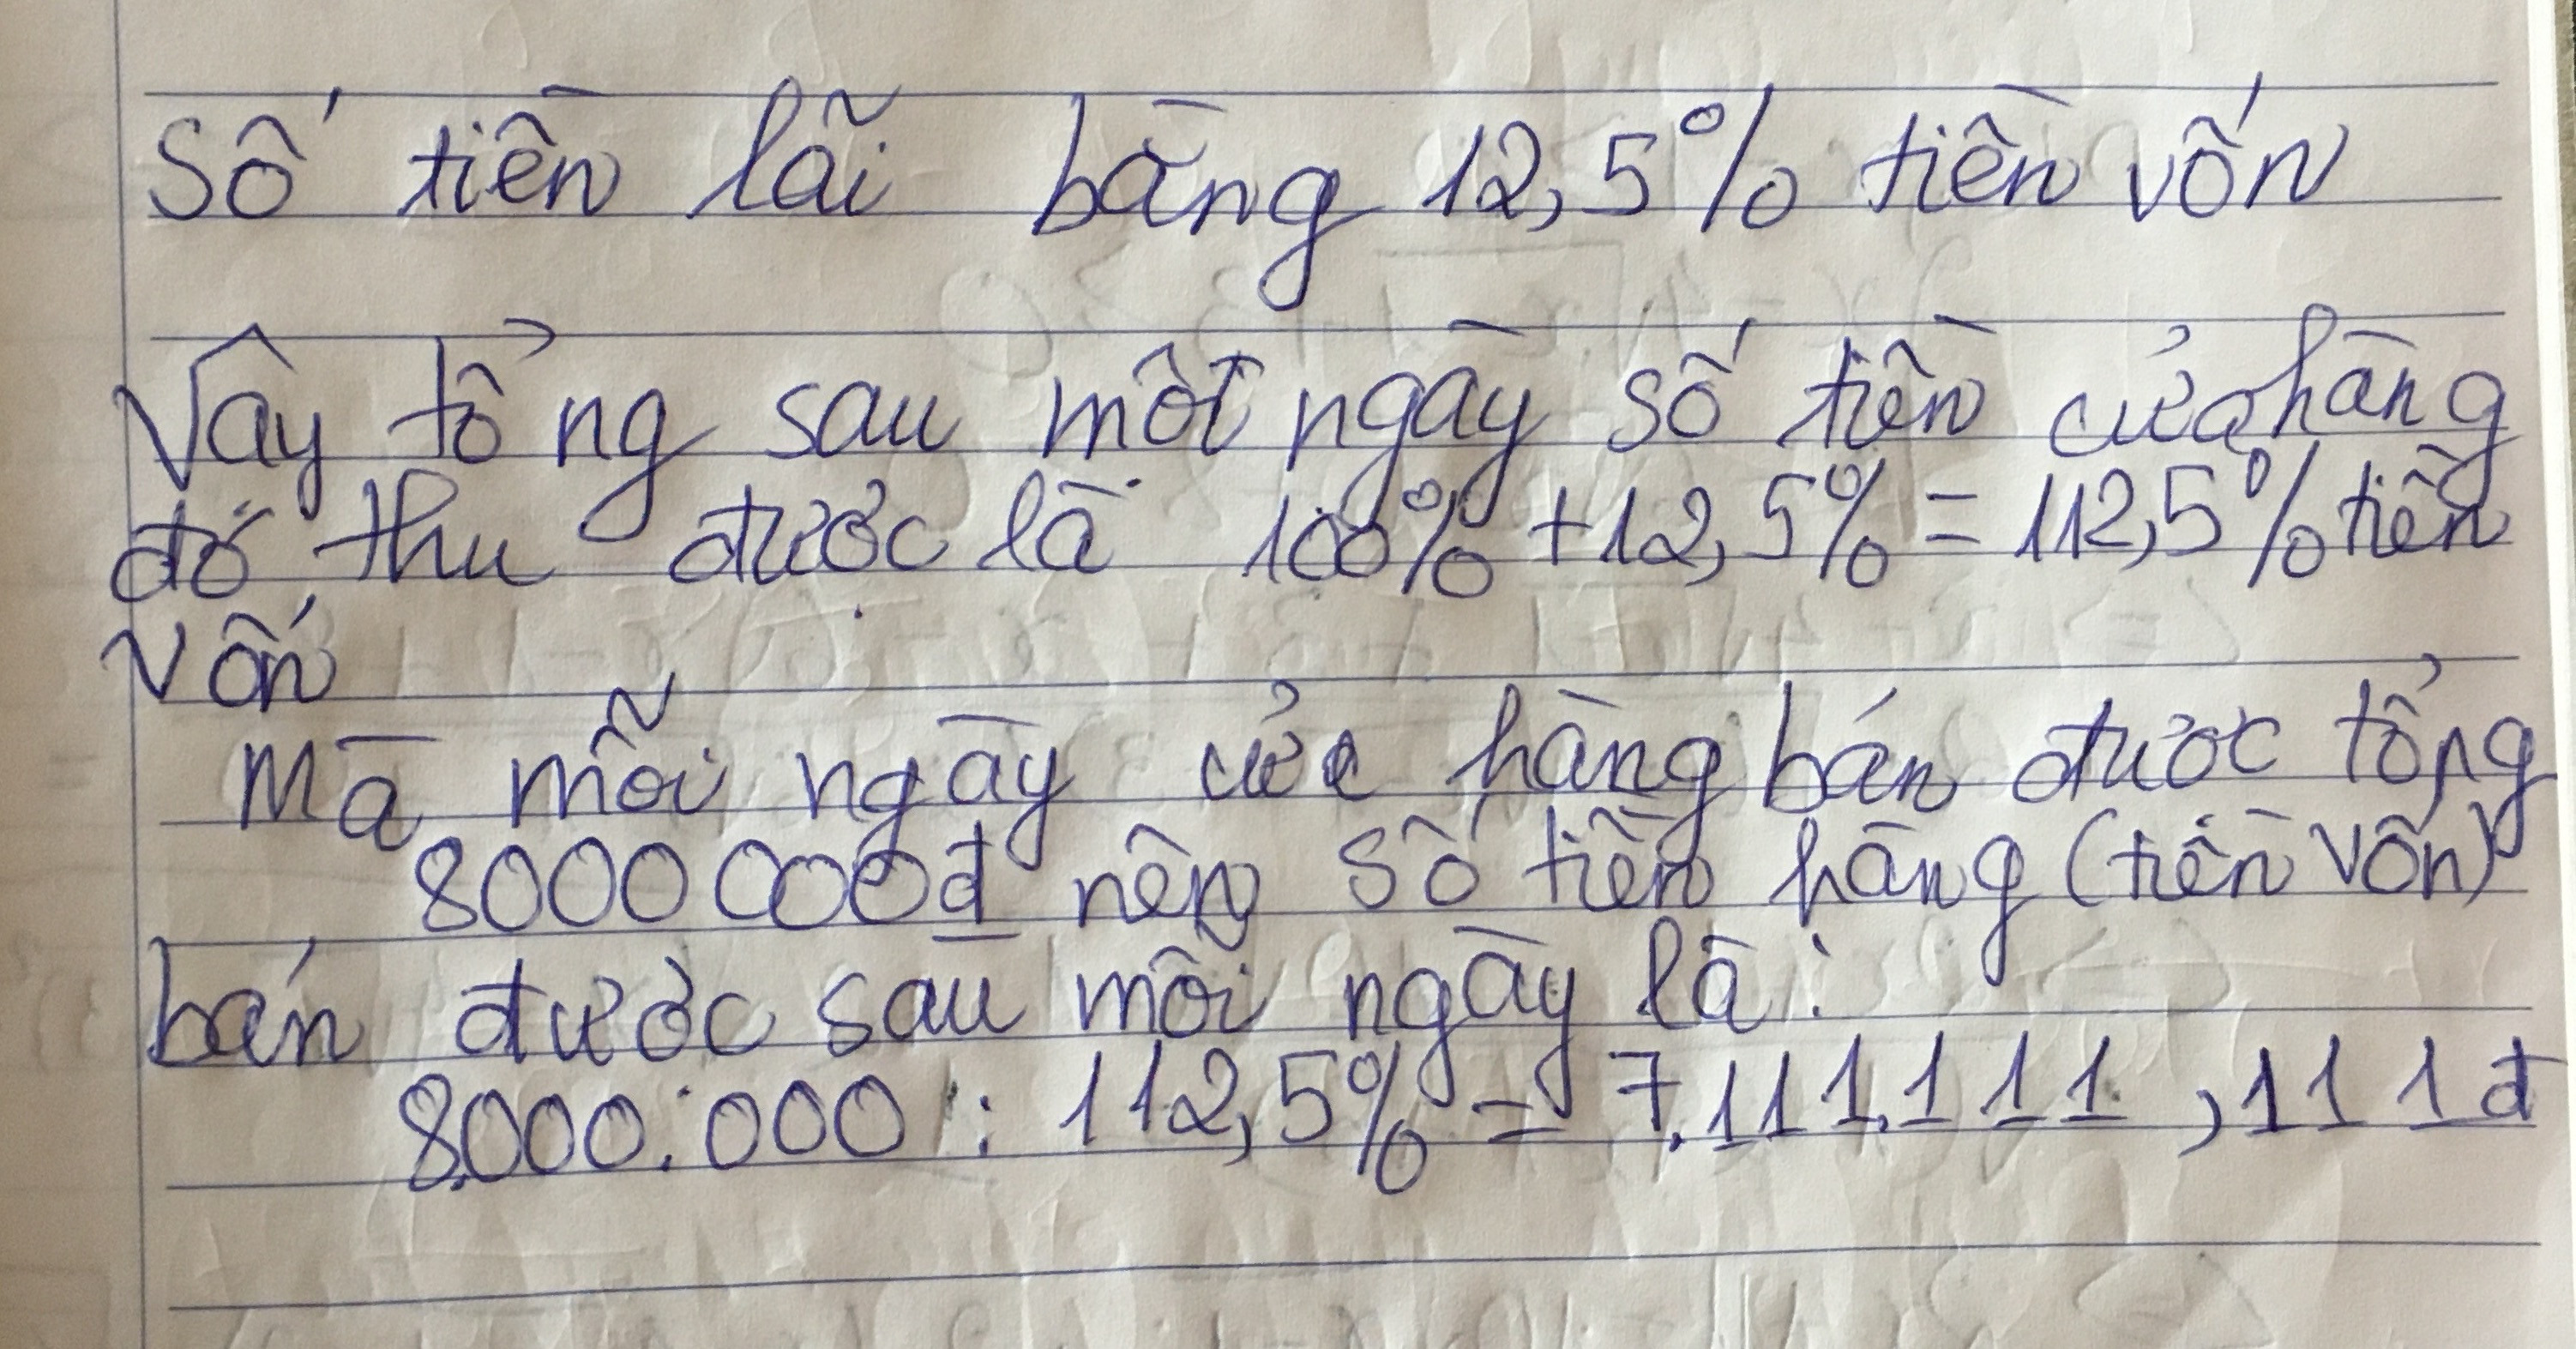 Số tiền lãi bằng 12,5% tiền vốn
Vây tổng sau một ngày số tiền cửa hàng
đó thu được là 100% + 12,5% = 112,5% tiền
vốn
Mà mỗi ngày cửa hàng bán được tổng
8000 000đ nên số tiền hàng (tiền vốn)
bán được sau mỗi ngày là:
8.000.000 : 112,5% = 7.111.111,111đ